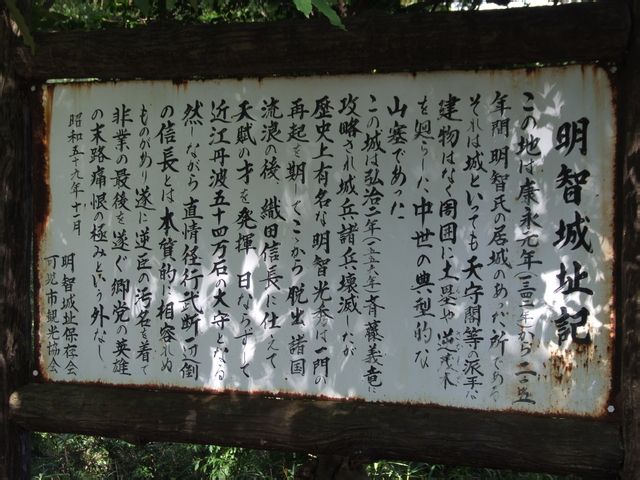 明智城址記
この地は康永元年(一三四二年)から二百十五
年間 明智氏の居城のあった所である
それは城といっても天守閣等の派手な
建物はなく周囲に土塁や
を廻らした中世の典型的な
山塞であった
この城は弘治二年(一五五六年)斉藤義竜に
攻略され城兵諸共壊滅したが
歴史上有名な明智光秀は一門の
再起を期してここから脱出諸国
流浪の後、織田信長に仕えて
天賦の才を発揮 日ならずして
近江丹波五十四万石の大守となる
然しながら直情径行武断一辺倒
の信長とは本質的に相容れぬ
ものがあり遂に逆臣の汚名を着て
非業の最後を遂ぐ郷党の英雄
の末路痛恨の極みという外なし
昭和五十九年十一月
明智城址保存会
可児市観光協会